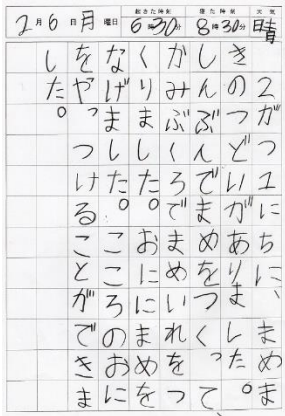 2月6日月曜日 起きた時刻 6時30分 寝た時刻 8時30分 天気 晴
2がつ1にちに、まめま
きのつどいがありました。
しんぶんでまめをつくって
かみぶくろでまめいれをつ
くりました。おににまめを
なげました。こころのおに
をやっつけることができま
した。